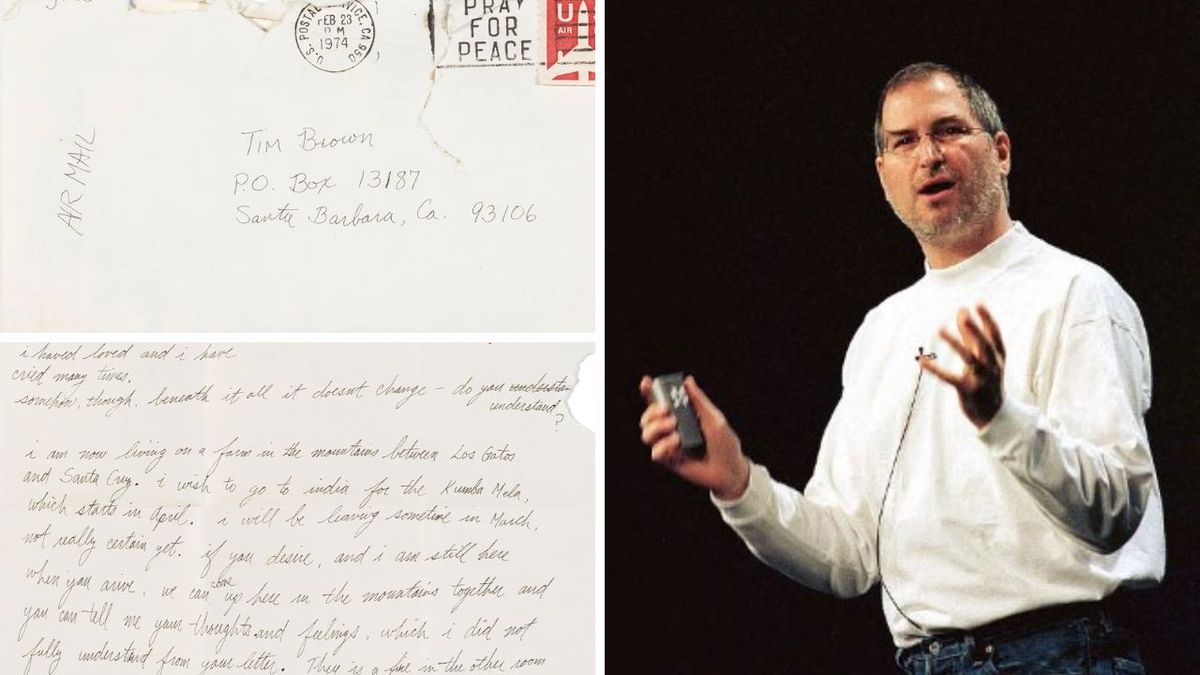 U.S. POSTAL SERVICE, CA 950
FEB 23
PM
1974
PRAY
FOR
PEACE
U
AIR
AIR MAIL
Tim Brown
P.O. Box 13187
Santa Barbara, Ca. 93106
i haved loved and i have
cried many times.
somehow, though, beneath it all it doesnt change - do you
understand
?
i am now living on a farm in the mountains between Los Gatos
and Santa Cruz. i wish to go to india for the Kumba Mela,
which starts in April. i will be leaving sometime in March,
not really certain yet. if you desire, and i am still here
when you arive, we can come up here in the mountains together and
you can tell me your thoughts and feelings, which i did not
fully understand from your letter. There is a fire in the other room